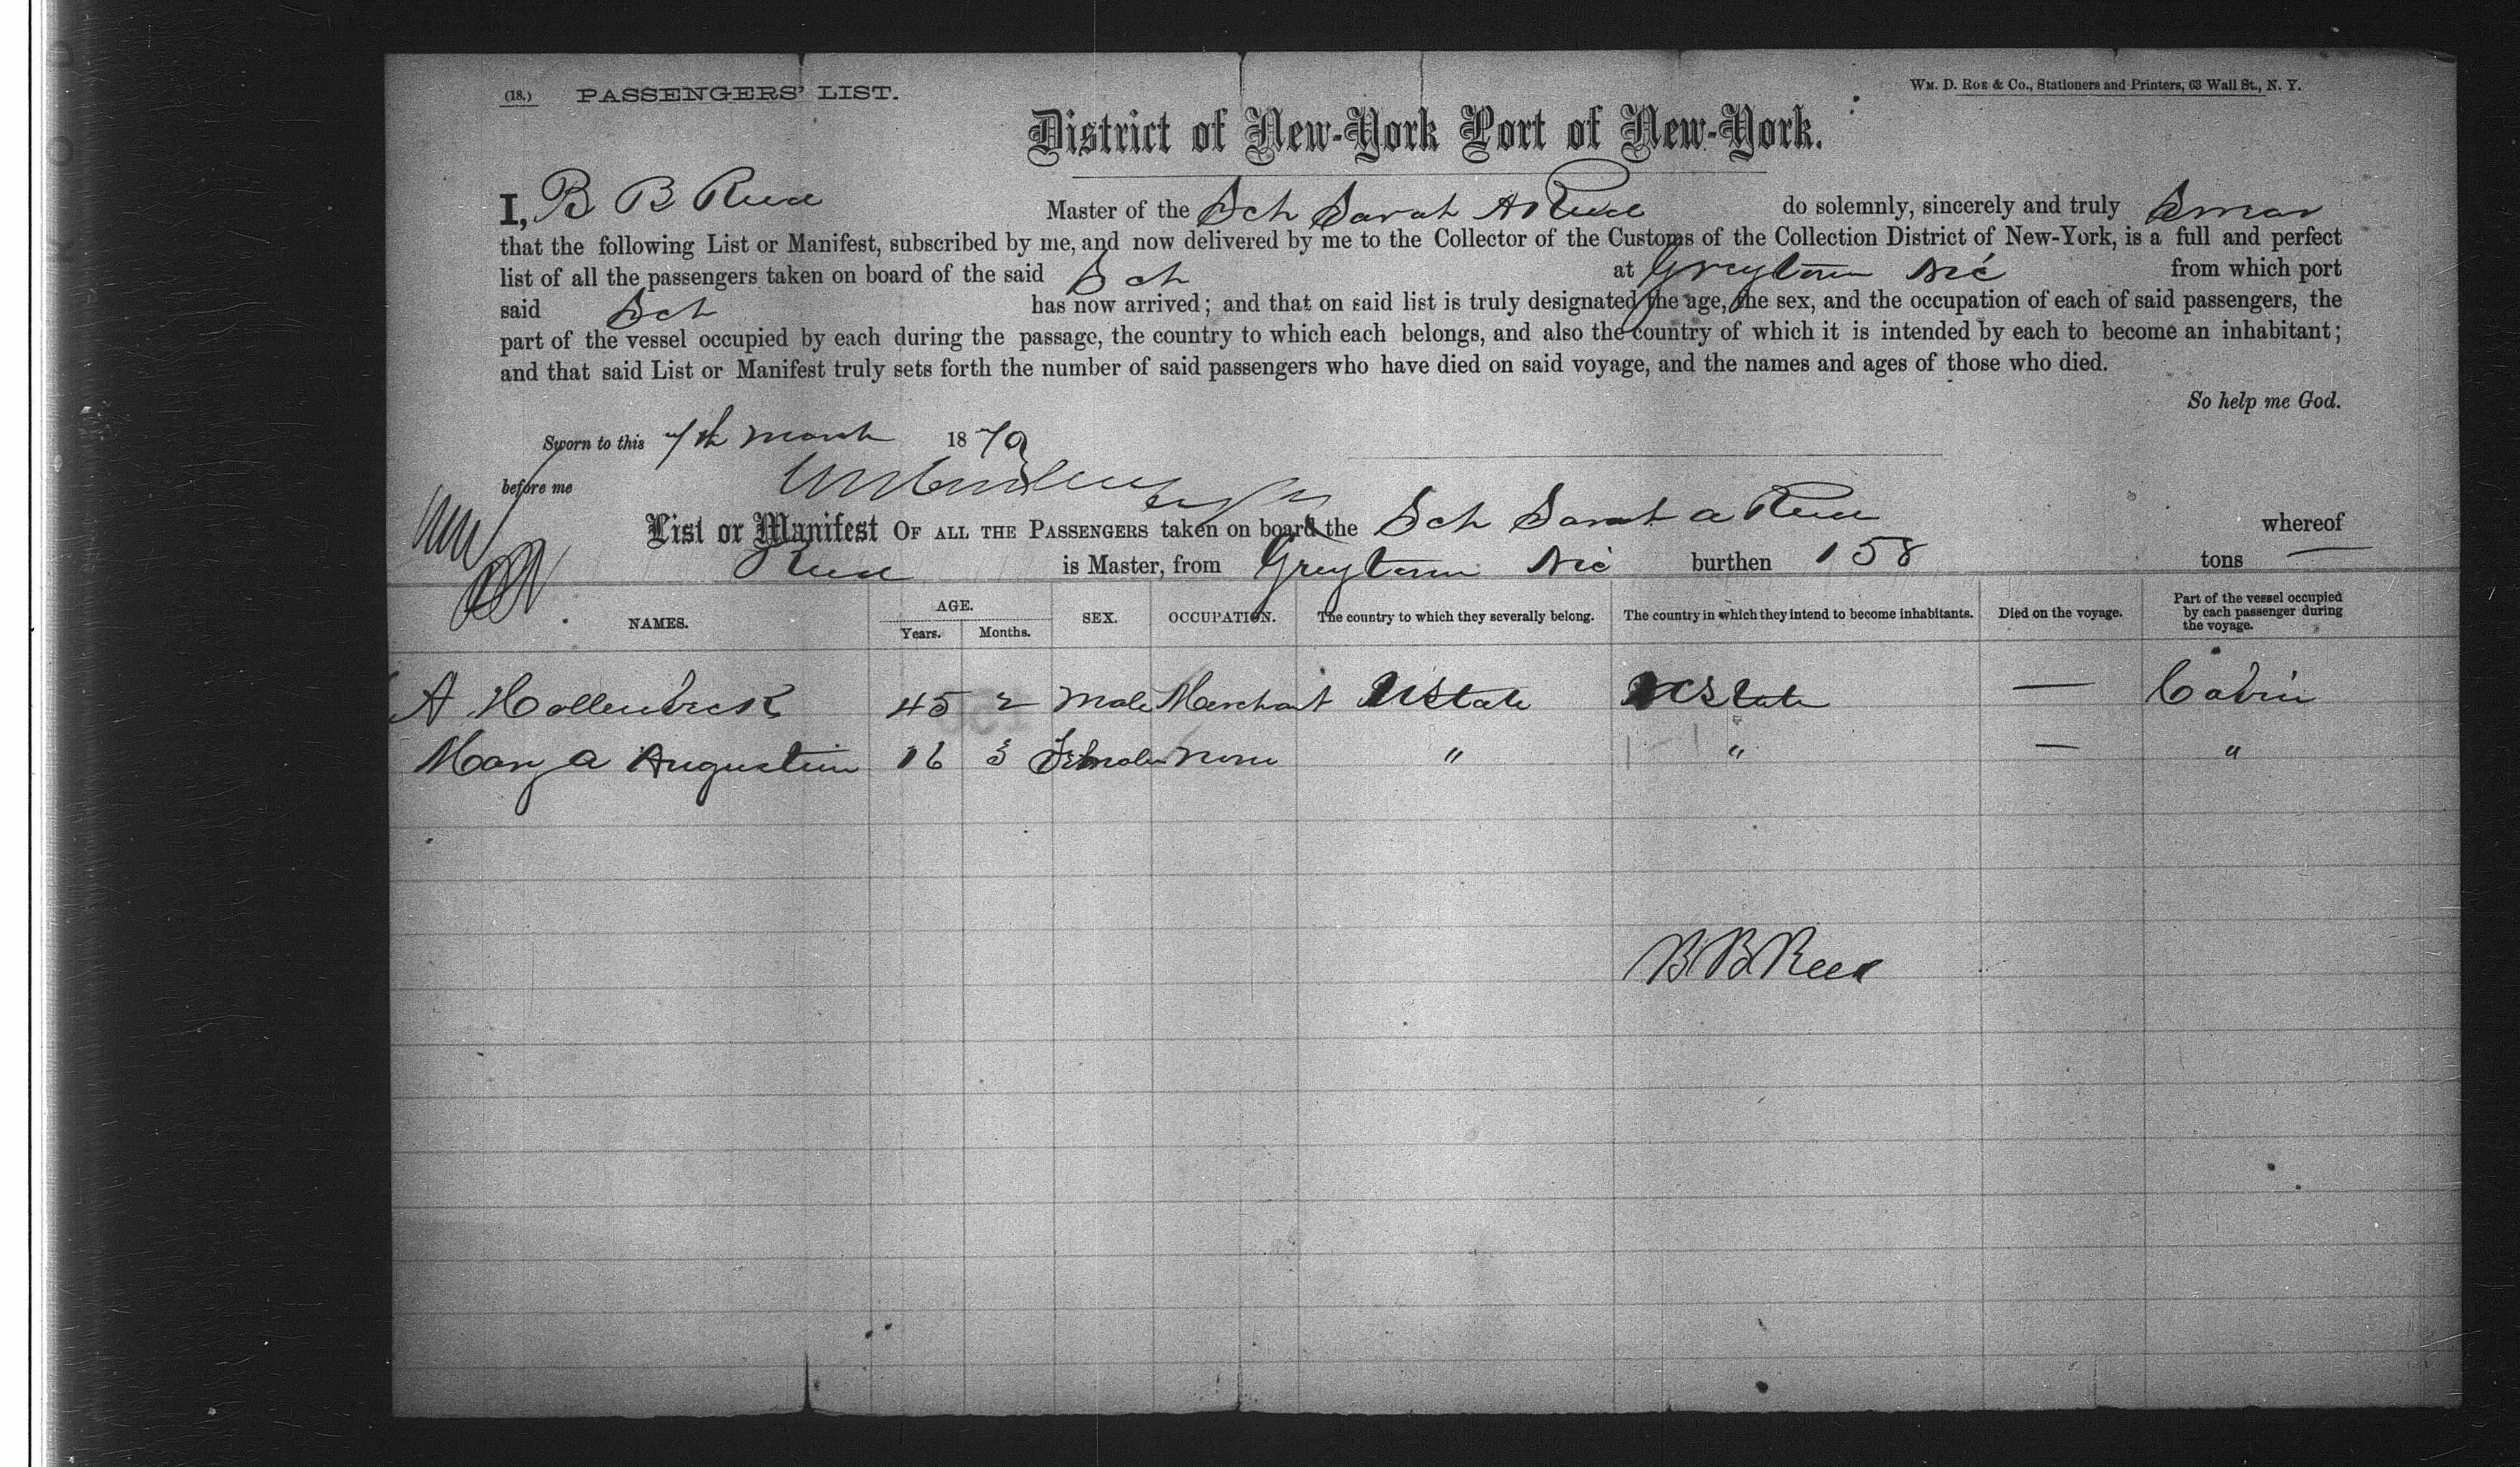 (18.) PASSENGERS' LIST.
Wm. D. Roe & Co., Stationers and Printers, 63 Wall St., N. Y.
District of New-York Port of New-York.
I, B B Reed Master of the Sch Sarah A Reed do solemnly, sincerely and truly Swear
that the following List or Manifest, subscribed by me, and now delivered by me to the Collector of the Customs of the Collection District of New-York, is a full and perfect
list of all the passengers taken on board of the said Sch at Greytown Nic from which port
said Sch has now arrived; and that on said list is truly designated the age, the sex, and the occupation of each of said passengers, the
part of the vessel occupied by each during the passage, the country to which each belongs, and also the country of which it is intended by each to become an inhabitant;
and that said List or Manifest truly sets forth the number of said passengers who have died on said voyage, and the names and ages of those who died.
So help me God.
Sworn to this 7th March 1879
before me
List or Manifest OF ALL THE PASSENGERS taken on board the Sch Sarah a Reed whereof
Reed is Master, from Greytown Nic burthen 158 tons —
NAMES. AGE. Years. Months. SEX. OCCUPATION. The country to which they severally belong. The country in which they intend to become inhabitants. Died on the voyage. Part of the vessel occupied by each passenger during the voyage.
A Hollenbeck 45 2 Male Merchant UState UState — Cabin
Mary A Augustin 16 3 Female None " " — "
B B Reed